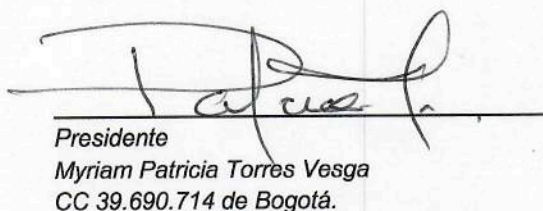 Presidente
Myriam Patricia Torres Vesga
CC 39.690.714 de Bogotá.